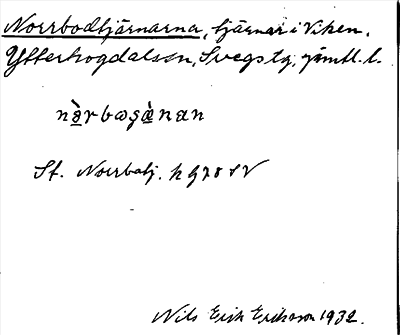 Norrbodtjärnarna, tjärnar i Viken,
Ytterhogdals sn, Svegs tg, Jämtl. l.
St. Norrbotj. h 978 SV
Nils Erik Eriksson 1932.